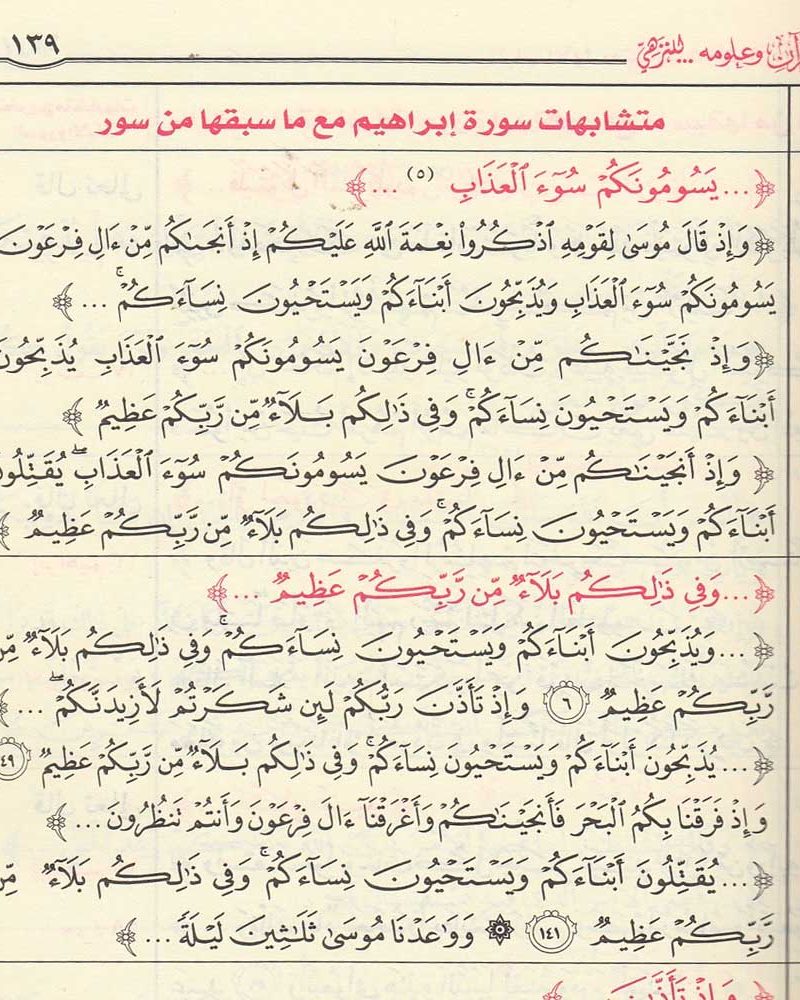 وعلومه ... للنزهي ١٣٩
متشابهات سورة إبراهيم مع ما سبقها من سور
﴿... يَسُومُونَكُمْ سُوٓءَ ٱلْعَذَابِ (٥) ...﴾
﴿وَإِذْ قَالَ مُوسَىٰ لِقَوْمِهِ ٱذْكُرُوا۟ نِعْمَةَ ٱللَّهِ عَلَيْكُمْ إِذْ أَنجَىٰكُم مِّنْ ءَالِ فِرْعَوْنَ
يَسُومُونَكُمْ سُوٓءَ ٱلْعَذَابِ وَيُذَبِّحُونَ أَبْنَآءَكُمْ وَيَسْتَحْيُونَ نِسَآءَكُمْ ۚ ... ﴾
﴿وَإِذْ نَجَّيْنَٰكُم مِّنْ ءَالِ فِرْعَوْنَ يَسُومُونَكُمْ سُوٓءَ ٱلْعَذَابِ يُذَبِّحُونَ
أَبْنَآءَكُمْ وَيَسْتَحْيُونَ نِسَآءَكُمْ ۚ وَفِى ذَٰلِكُم بَلَآءٌ مِّن رَّبِّكُمْ عَظِيمٌ ﴾
﴿ وَإِذْ أَنجَيْنَٰكُم مِّنْ ءَالِ فِرْعَوْنَ يَسُومُونَكُمْ سُوٓءَ ٱلْعَذَابِ ۖ يُقَتِّلُونَ
أَبْنَآءَكُمْ وَيَسْتَحْيُونَ نِسَآءَكُمْ ۚ وَفِى ذَٰلِكُم بَلَآءٌ مِّن رَّبِّكُمْ عَظِيمٌ ﴾
﴿...وَفِى ذَٰلِكُم بَلَآءٌ مِّن رَّبِّكُمْ عَظِيمٌ ...﴾
﴿...وَيُذَبِّحُونَ أَبْنَآءَكُمْ وَيَسْتَحْيُونَ نِسَآءَكُمْ ۚ وَفِى ذَٰلِكُم بَلَآءٌ مِّن
رَّبِّكُمْ عَظِيمٌ ٦ وَإِذْ تَأَذَّنَ رَبُّكُمْ لَئِن شَكَرْتُمْ لَأَزِيدَنَّكُمْ ۖ ... ﴾
﴿... يُذَبِّحُونَ أَبْنَآءَكُمْ وَيَسْتَحْيُونَ نِسَآءَكُمْ ۚ وَفِى ذَٰلِكُم بَلَآءٌ مِّن رَّبِّكُمْ عَظِيمٌ ٤٩
وَإِذْ فَرَقْنَا بِكُمُ ٱلْبَحْرَ فَأَنجَيْنَٰكُمْ وَأَغْرَقْنَآ ءَالَ فِرْعَوْنَ وَأَنتُمْ تَنظُرُونَ... ﴾
﴿... يُقَتِّلُونَ أَبْنَآءَكُمْ وَيَسْتَحْيُونَ نِسَآءَكُمْ ۚ وَفِى ذَٰلِكُم بَلَآءٌ مِّن
رَّبِّكُمْ عَظِيمٌ ١٤١ ۞ وَوَٰعَدْنَا مُوسَىٰ ثَلَٰثِينَ لَيْلَةً ... ﴾
وَإِذْ تَأَذَّنَ